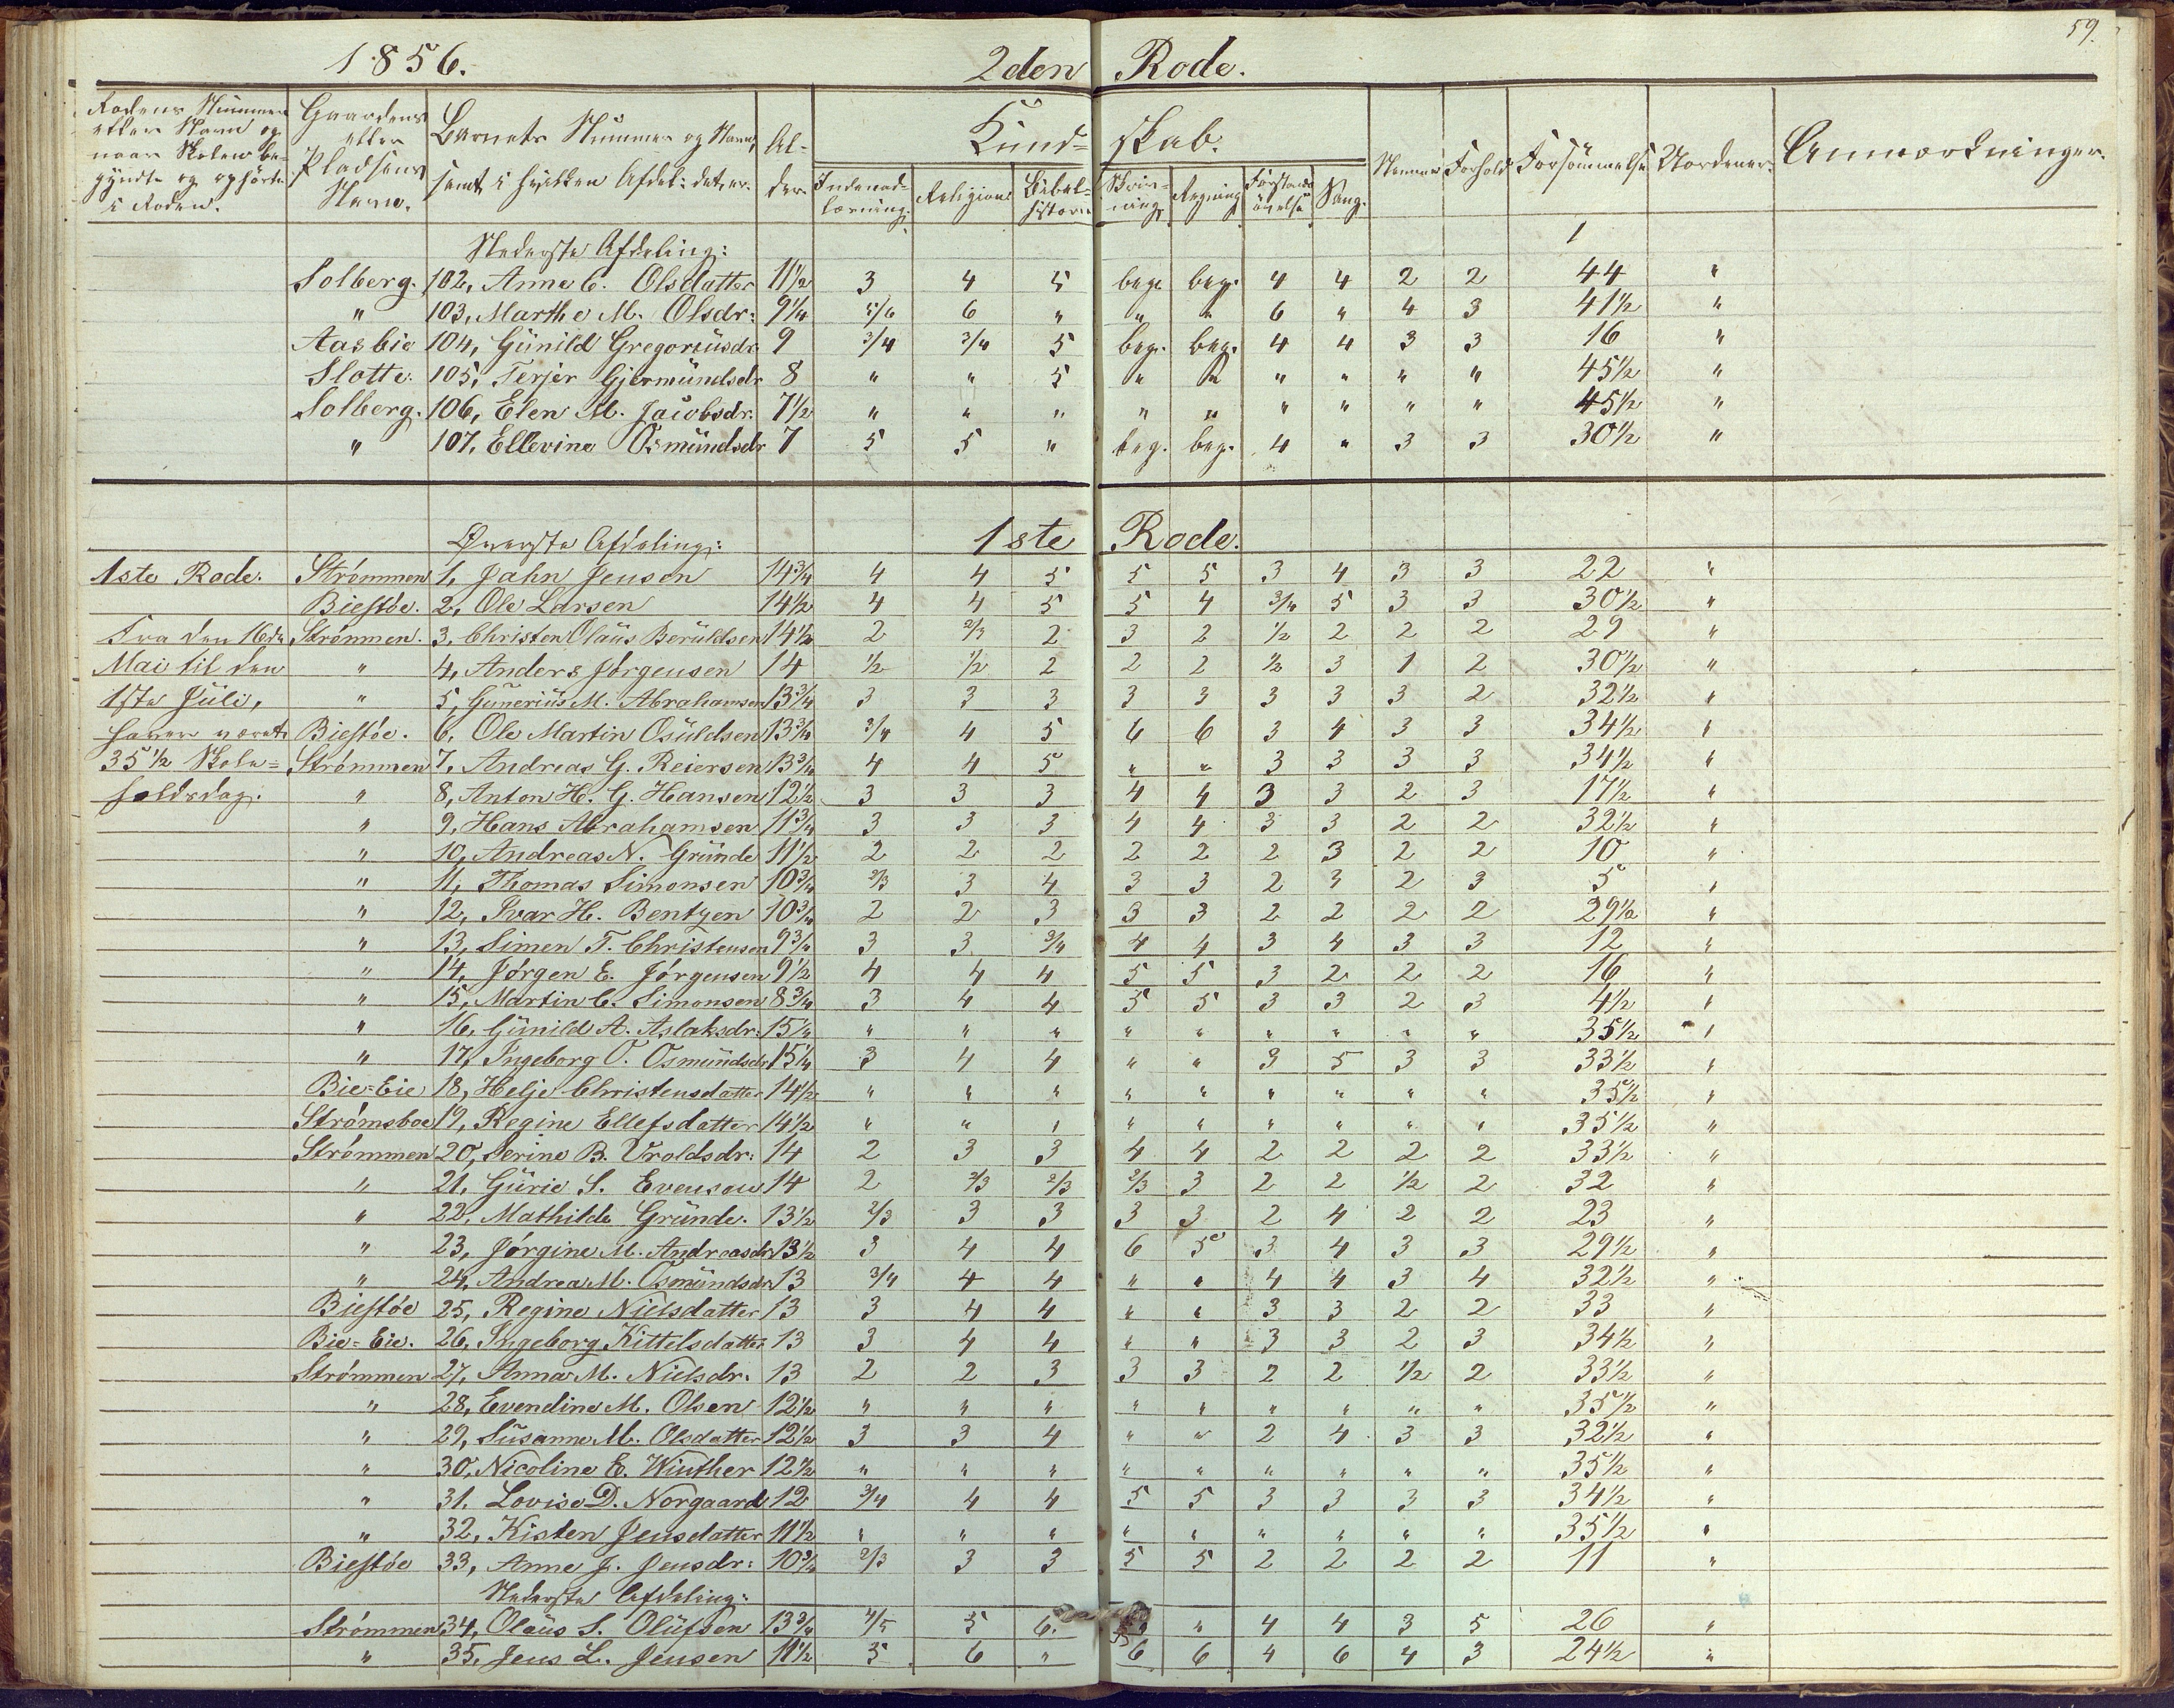 59.
1856. 2den Rode.
Rodens Nummer eller Navn og naar Skolen begyndte og ophörte i Roden.
Gaardens eller Pladsens Navn.
Barnets Nummer og Navn, samt i hvilken Afdel: det er.
Alder
Kundskab.
Indenadlæsning. Religion Bibelhistorie Skrivning. Regning Forstandsövelse Sang.
Nemme Forhold Forsömmelse Anmærkninger.
1
Nederste Afdeling:
Solberg. 102, Anne C. Olsdatter 11½ 3 4 5 beg. beg. 4 4 2 2 44 "
" 103, Marthe M. Olsdr: 9¼ 5/6 6 " " " 6 " 4 3 41½ "
Aasbie 104, Günild Gregoriüsdr 9 3/4 3/4 5 beg. beg. 4 4 3 3 16 "
Slotte. 105, Terjer Gjermündsdr 8 " " 5 " " " " " " 45½ "
Solberg. 106, Elen M. Jacobsdr. 7½ " " " " " " " " " 45½ "
" 107, Ellevine Osmündsdr 7 5 5 " beg. beg. 4 " 3 3 30½ "
1ste Rode.
Øverste Afdeling:
1ste Rode. Strømmen 1, Jahn Jensen 14¾ 4 4 5 5 5 3 4 3 3 22 "
Biestöe. 2, Ole Larsen 14½ 4 4 5 5 4 3/4 5 3 3 30½ "
Fra den 16de Strømmen. 3, Christen Olaüs Berüldsen 14½ 2 2/3 2 3 2 ½ 2 2 2 29 "
Mai til den " 4, Anders Jörgensen 14 ½ ½ 2 2 2 ½ 3 1 2 30½ "
1ste Juli, " 5, Günerius M. Abrahamsen 13¾ 3 3 3 3 3 3 3 3 2 32½ "
haver været Biestöe. 6, Ole Martin Osüldsen 13¾ 3/4 4 5 6 6 3 4 3 3 34½ "
35½ Skole= Strømmen 7, Andreas G. Reiersen 13¾ 4 4 5 " " 3 3 3 3 34½ "
holdsdag. " 8, Anton H. G. Hansen 12½ 3 3 3 4 4 3 3 2 3 17½ "
" 9, Hans Abrahamsen 11¾ 3 3 3 4 4 3 3 2 2 32½ "
" 10, Andreas N. Gründe 11½ 2 2 2 2 2 2 3 2 2 10 "
" 11, Thomas Simonsen 10¾ 2/3 3 4 3 3 2 3 2 3 5 "
" 12, Ivar H. Bentzen 10¾ 2 2 3 3 3 2 2 2 2 29½ "
" 13, Simen T. Christensen 9¾ 3 3 3/4 4 4 3 4 3 3 12 "
" 14, Jörgen E. Jörgensen 9½ 4 4 4 5 5 3 2 2 2 16 "
" 15, Martin C. Simonsen 8¾ 3 4 4 5 5 3 3 2 3 4½ "
" 16, Günild A. Aslaksdr. 15¼ " " " " " " " " " 35½ "
" 17, Ingeborg O. Osmündsdr 15¼ 3 4 4 " " 3 5 3 3 33½ "
Bie=Eie 18, Helje Christensdatter 14½ " " " " " " " " " 35½ "
Strømsboe 19, Regine Ellefsdatter 14½ " " " " " " " " " 35½ "
Strømmen 20, Serine B. Uroldsdr: 14 2 3 3 4 4 2 2 2 2 33½ "
" 21, Gürie S. Evensen 14 2 2/3 2/3 2/3 3 2 2 ½ 2 32 "
" 22, Mathilde Gründe. 13½ 2/3 3 3 3 3 2 4 2 2 23 "
" 23, Jörgine M. Andreasdr 13½ 3 4 4 6 5 3 4 3 3 29½ "
" 24, Andrea M. Osmündsdr. 13 3/4 4 4 " " 4 4 3 4 32½ "
Biestöe 25, Regine Nielsdatter 13 3 4 4 " " 3 3 2 2 33 "
Bie=Eie. 26, Ingeborg Kittelsdatter 13 3 4 4 " " 3 3 2 3 34½ "
Strømmen 27, Anna M. Nielsdr. 13 2 2 3 3 3 2 2 ½ 2 33½ "
" 28, Evendine M. Olsen 12½ " " " " " " " " " 35½ "
" 29, Süsanne M. Olsdatter 12½ 3 3 4 " " 2 4 3 3 32½ "
" 30, Nicoline E. Winther 12½ " " " " " " " " " 35½ "
" 31. Lovise D. Norgaard 12 3/4 4 4 5 5 3 3 3 3 34½ "
" 32, Kisten Jensdatter 11½ " " " " " " " " " 35½ "
Biestöe 33, Anne J. Jensdr: 10¾ 2/3 3 3 5 5 2 2 2 2 11 "
Nederste Afdeling:
Strømmen 34, Olaüs S. Olüfsen 13¾ 4/5 5 6. " 4 4 3 5 26 "
" 35, Jens L. Jensen 11½ 5 6 " 6 6 4 6 4 3 24½ "